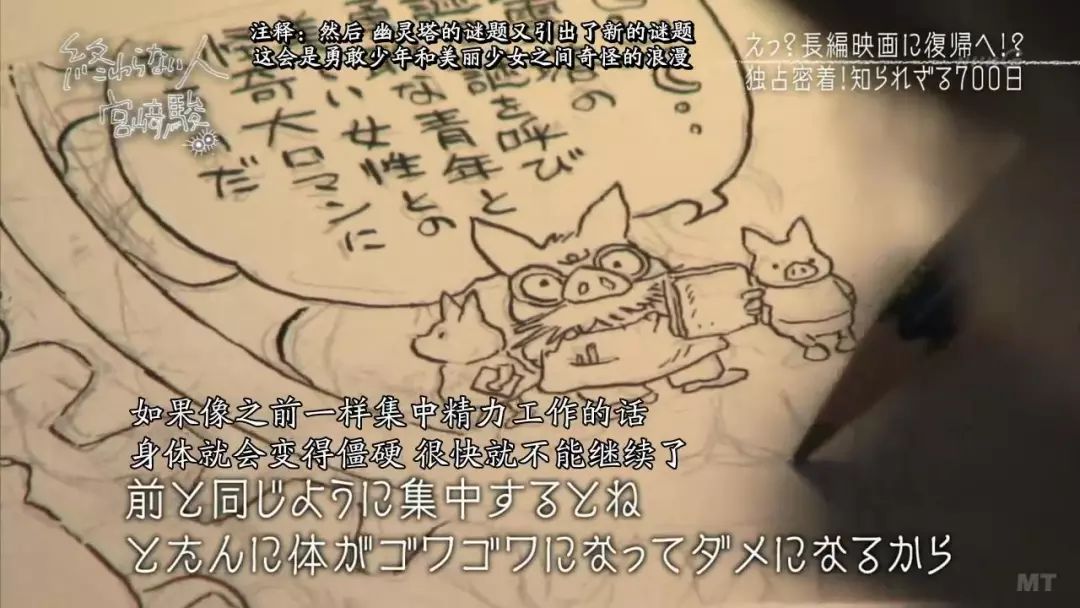 注释：然后 幽灵塔的谜题又引出了新的谜题
这会是勇敢少年和美丽少女之间奇怪的浪漫
終わらない人
宮﨑駿
えっ?長編映画に復帰へ!?
独占密着!知られざる700日
塔の
謎を呼び
な青年と
い女性との
奇大ロマンに
だ
如果像之前一样集中精力工作的话
身体就会变得僵硬 很快就不能继续了
前と同じように集中するとね
とたんに体がゴワゴワになってダメになるから
MT